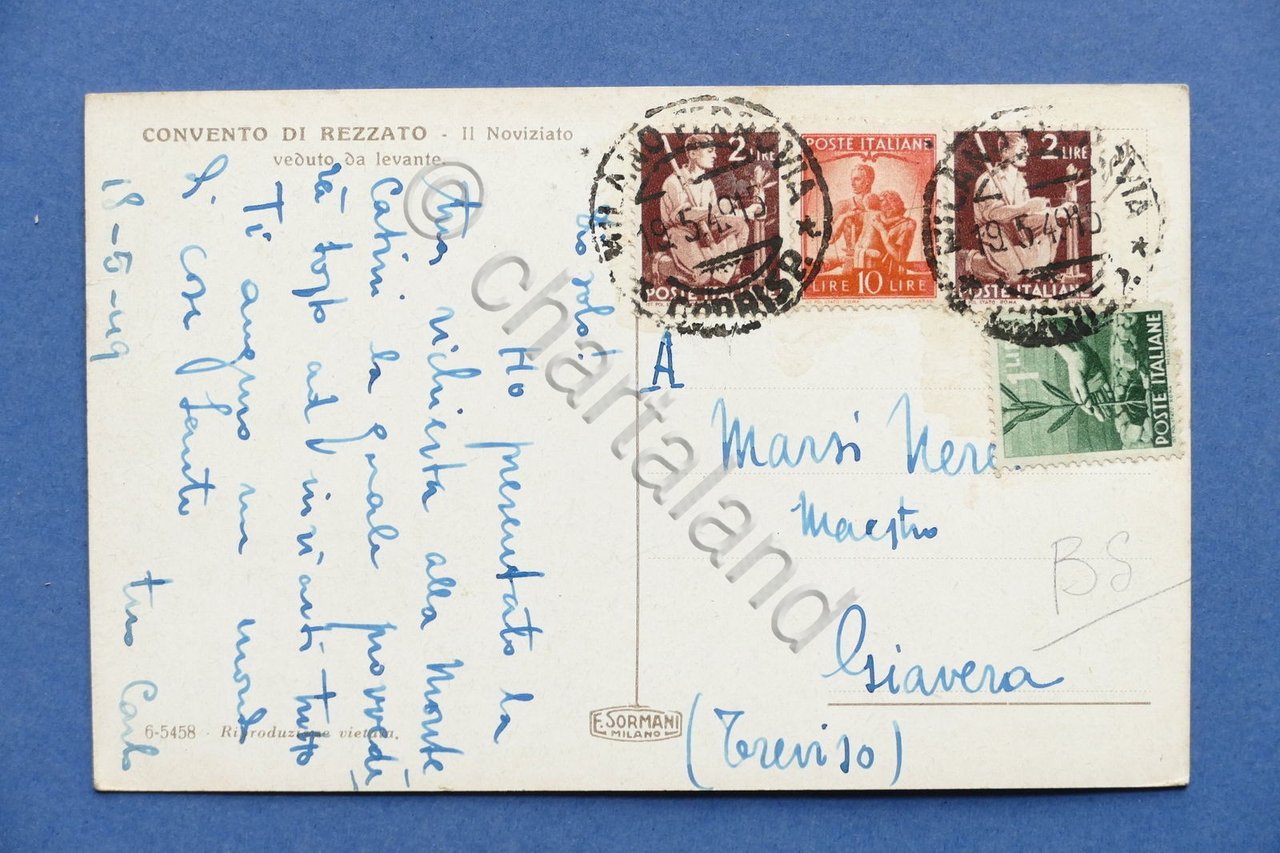 CONVENTO DI REZZATO - Il Noviziato
veduto da levante.
18-5-49
Ho presentato la
tua richiesta alla Monte
Catini la quale provvede-
rà tosto ad inviarti tutto
Ti auguro un mondo
di cose
tuo Carlo
6-5458 - Riproduzione vietata.
E. SORMANI
MILANO
2 LIRE
POSTE ITALIANE
POSTE ITALIANE
LIRE 10 LIRE
2 LIRE
POSTE ITALIANE
MILANO FERROVIA
19.5.49.15
CORRISP.
MILANO FERROVIA
19.5.49.15
1 LIRA
POSTE ITALIANE
A
Marsi
Maestro
Giavera
(Treviso)
BS
© chartaland